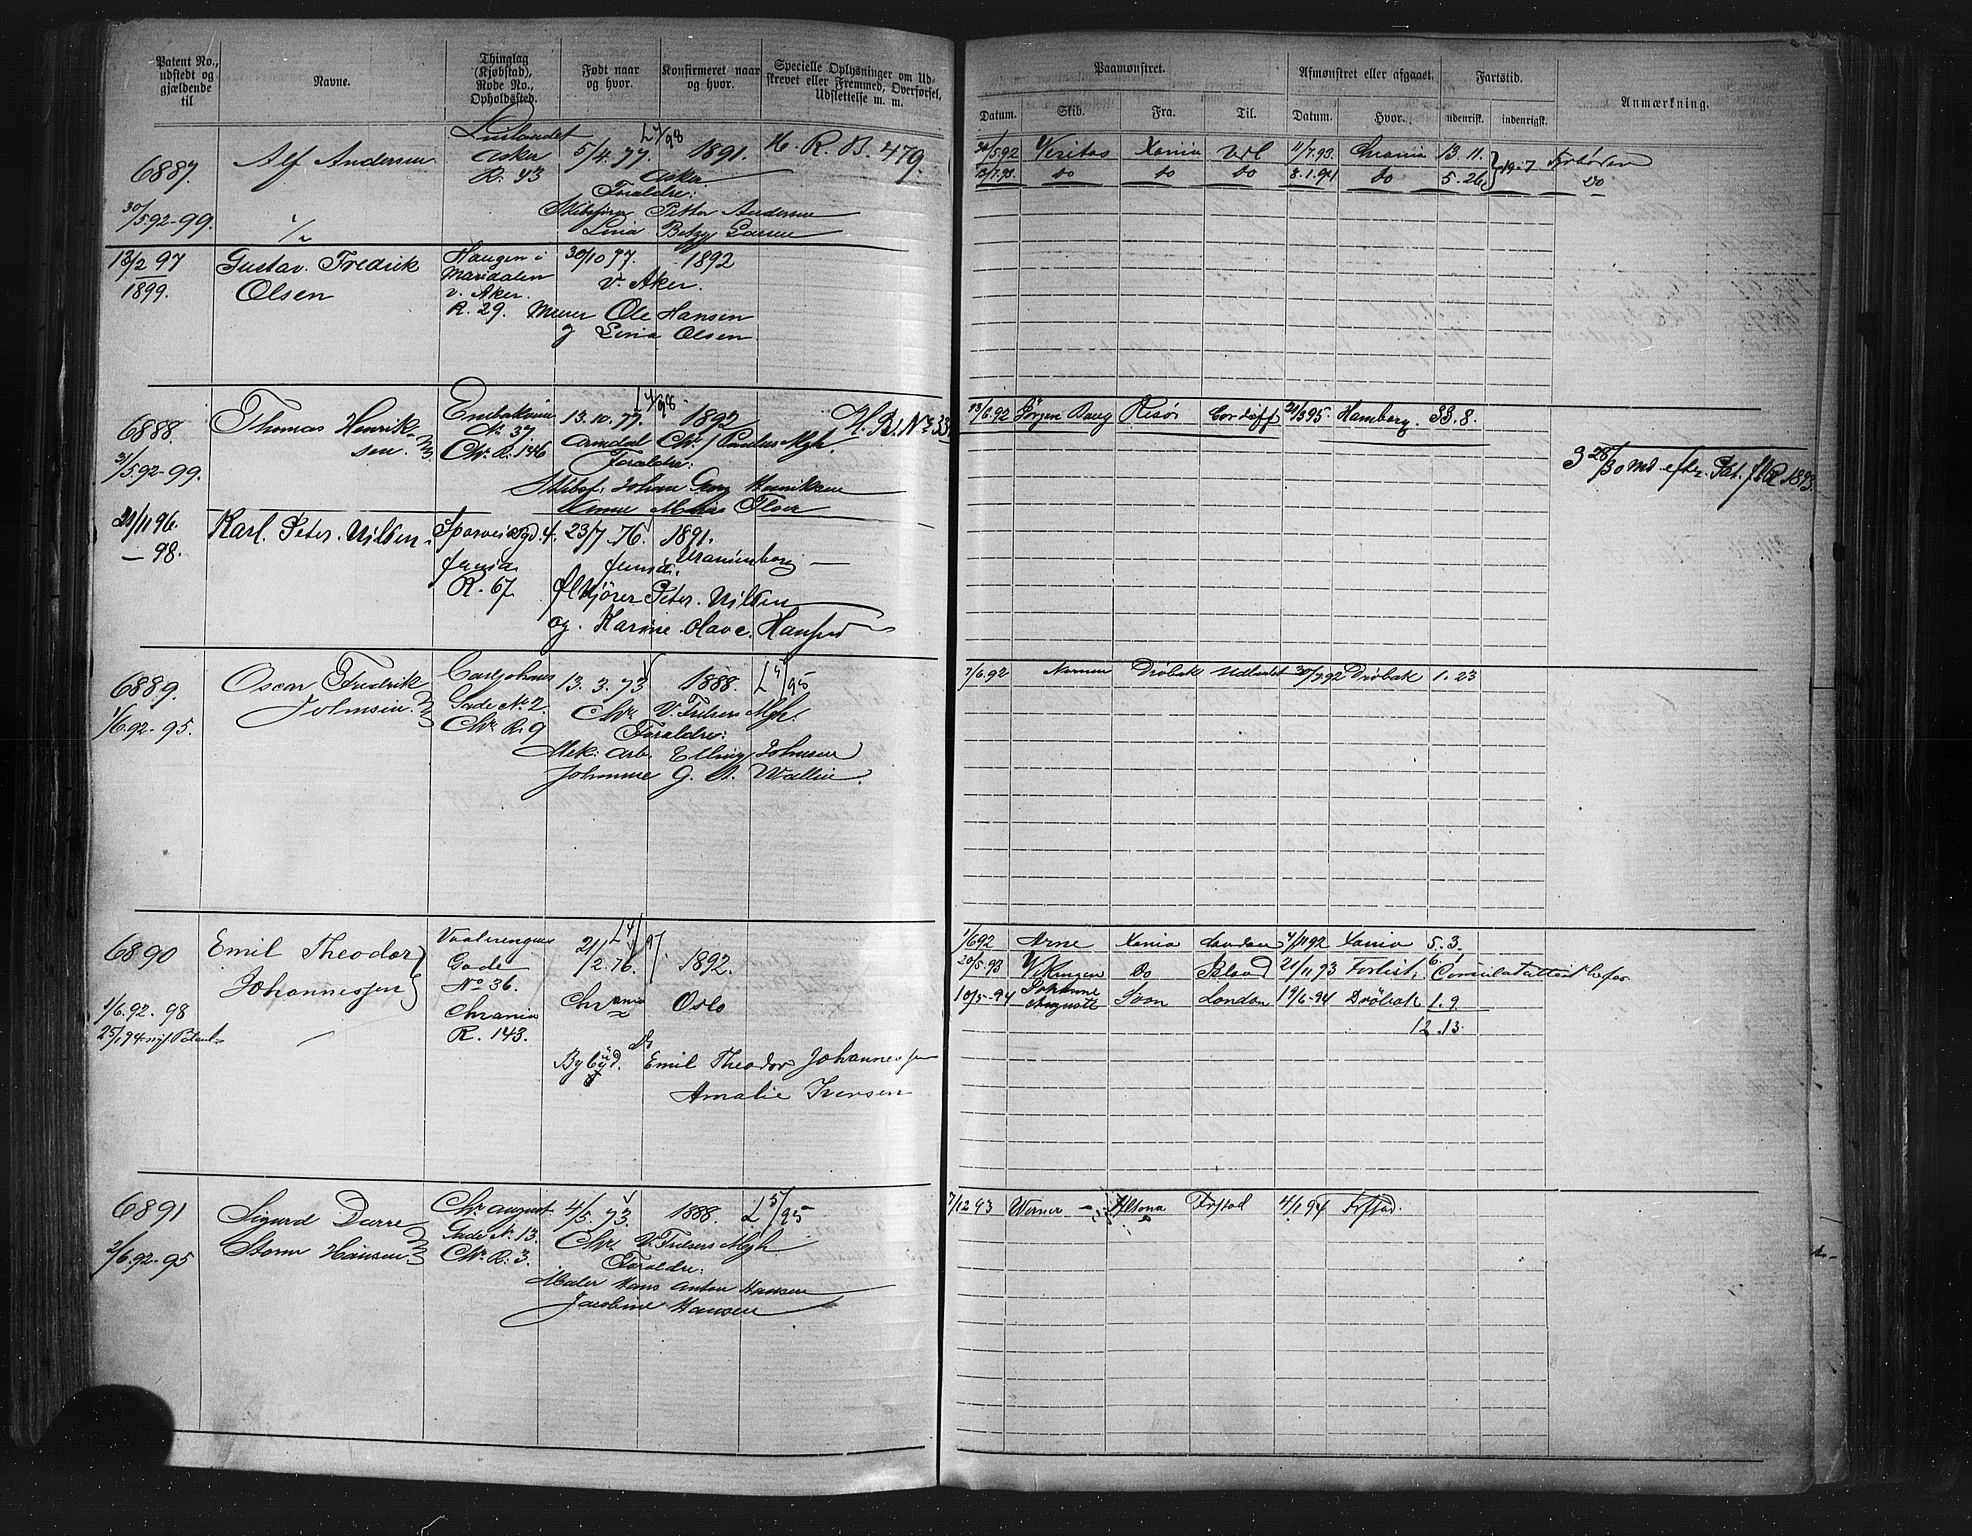 Patent No., udstedt og gjældende til
Navne.
Thinglag (Kjøbstad), Rode No., Opholdssted.
Født naar og hvor.
Konfirmeret naar og hvor.
Specielle Oplysninger om Udskrevet eller Fremmed, Overførsel, Udslettelse m. m.
Paamønstret.
Afmønstret eller afgaaet.
Fartstid.
Anmærkning.
Datum.
Skib.
Fra.
Til.
Datum.
Hvor.
udenrigsk.
indenrigsk.
6887.
30/5 92-99.
Alf Andersen
Asker
R. 43
5/4. 77.
L 4/98
1891.
Asker
H. R. B. 479.
Foraldre:
Skibsfører Petter Andersen
Lina Betzy
30/5.92 Veritas Xania Udl 11/7.93. Chrania 13. 11.
12/7.93. do do do 8.1.94 do 5. 26 19-7
do
13/2 97
1899.
Gustav. Fredrik
Olsen
Haugen i
Maridalen
v. Aker.
R. 29.
30/10 77.
1892
V. Aker.
Murer Ole Hansen
og Lina Olsen.
6888.
31/5 92-99.
Thomas Henrik-
sen.
No 37
Chr. R. 146
13. 10. 77.
L 4/98
1892
Arendal Chr.
Foraldre:
Skibsf. Johan Georg Henriksen
H. B. No 33
13/6.92 Jörgen Bang Risör Cardiff 21/3 95 Hamborg. 33. 8.
3 28/30 Md. efter Pat.
21/11 96.
— 98.
Karl. Peter. Nilsen.
Sporveisgd. 4.
R. 67.
23/7. 76.
1891.
Uranienborg
Peter. Nilsen
og. Karine. Olave.
6889.
1/6.92-95.
Oscar Fredrik
Johnsen
Carljohns
Gade No 2.
Chr. R. 9
13. 3. 73
Chr.
1888.
L 5/95
V. Frelsers Mgh.
Foraldre:
Mek: arb. Elling Johnsen
Johanne G. A. Wallin.
7/6.92 Drøbak Udlandet 30/7.92 Drøbak 1. 23
6890
1/6.92-98
25/1 94 nyt Patent
Emil Theodor
Johannessen
Vaalerengens
Gade
No 36.
Chrania
R. 143.
21/2. 76.
L 4/97.
1892.
Chrania
Oslo
Bybud. Emil Theodor Johannessen
Amalie Iversen
1/6 92 Arne Xania London 4/11 92 Xania 5. 3.
20/5.93 Vikingen do Island 21/11 93 Forlist, 6. 1 Consulatattest
10/5-94 Johanne Auguste London 19/6-94 Drøbak 1. 9
12. 13.
6891
2/6.92-95
Sigurd Darre
Storm Hansen
Chr. august
Gade No 13.
Chr. R. 3.
4/5. 73.
Chr.
1888.
L 5/95
V. Frelsers Mgh
Foraldre:
Maler Hans Anton Hansen
Jacobine Hansen
7/12 93 Werner - Altona Frstad 4/1 94 Frstad.